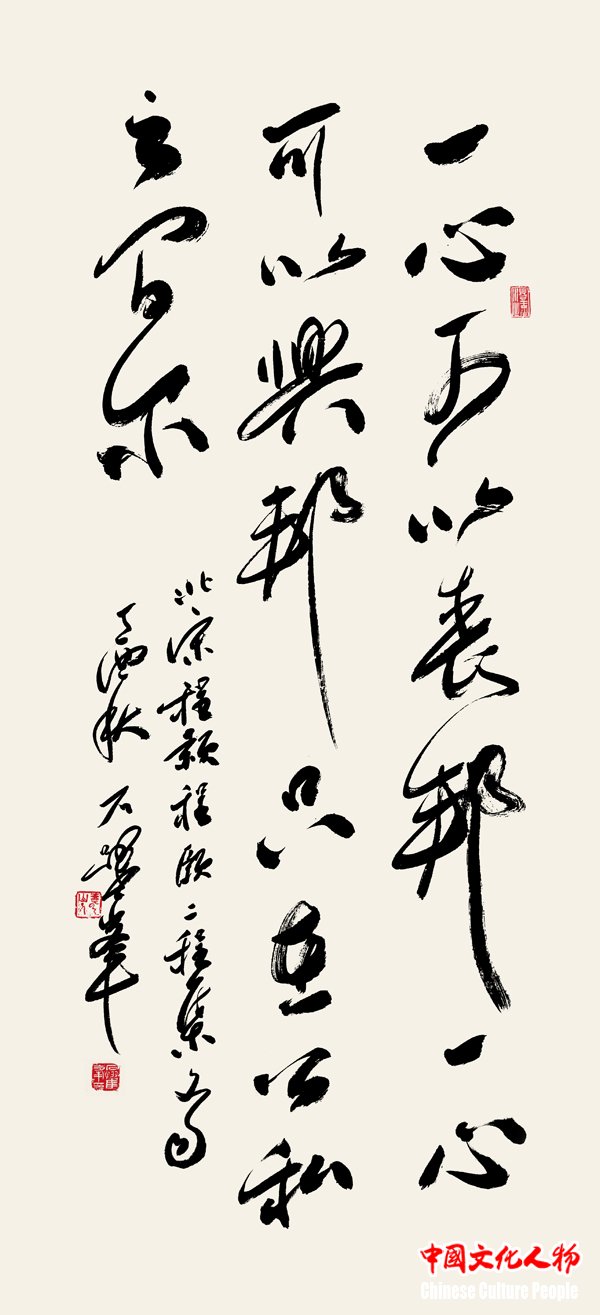 一心可以喪邦一心
可以興邦只在公私
之間尔
北宋程顥程頤二程集
丁酉秋 石
中國文化人物
Chinese Culture People